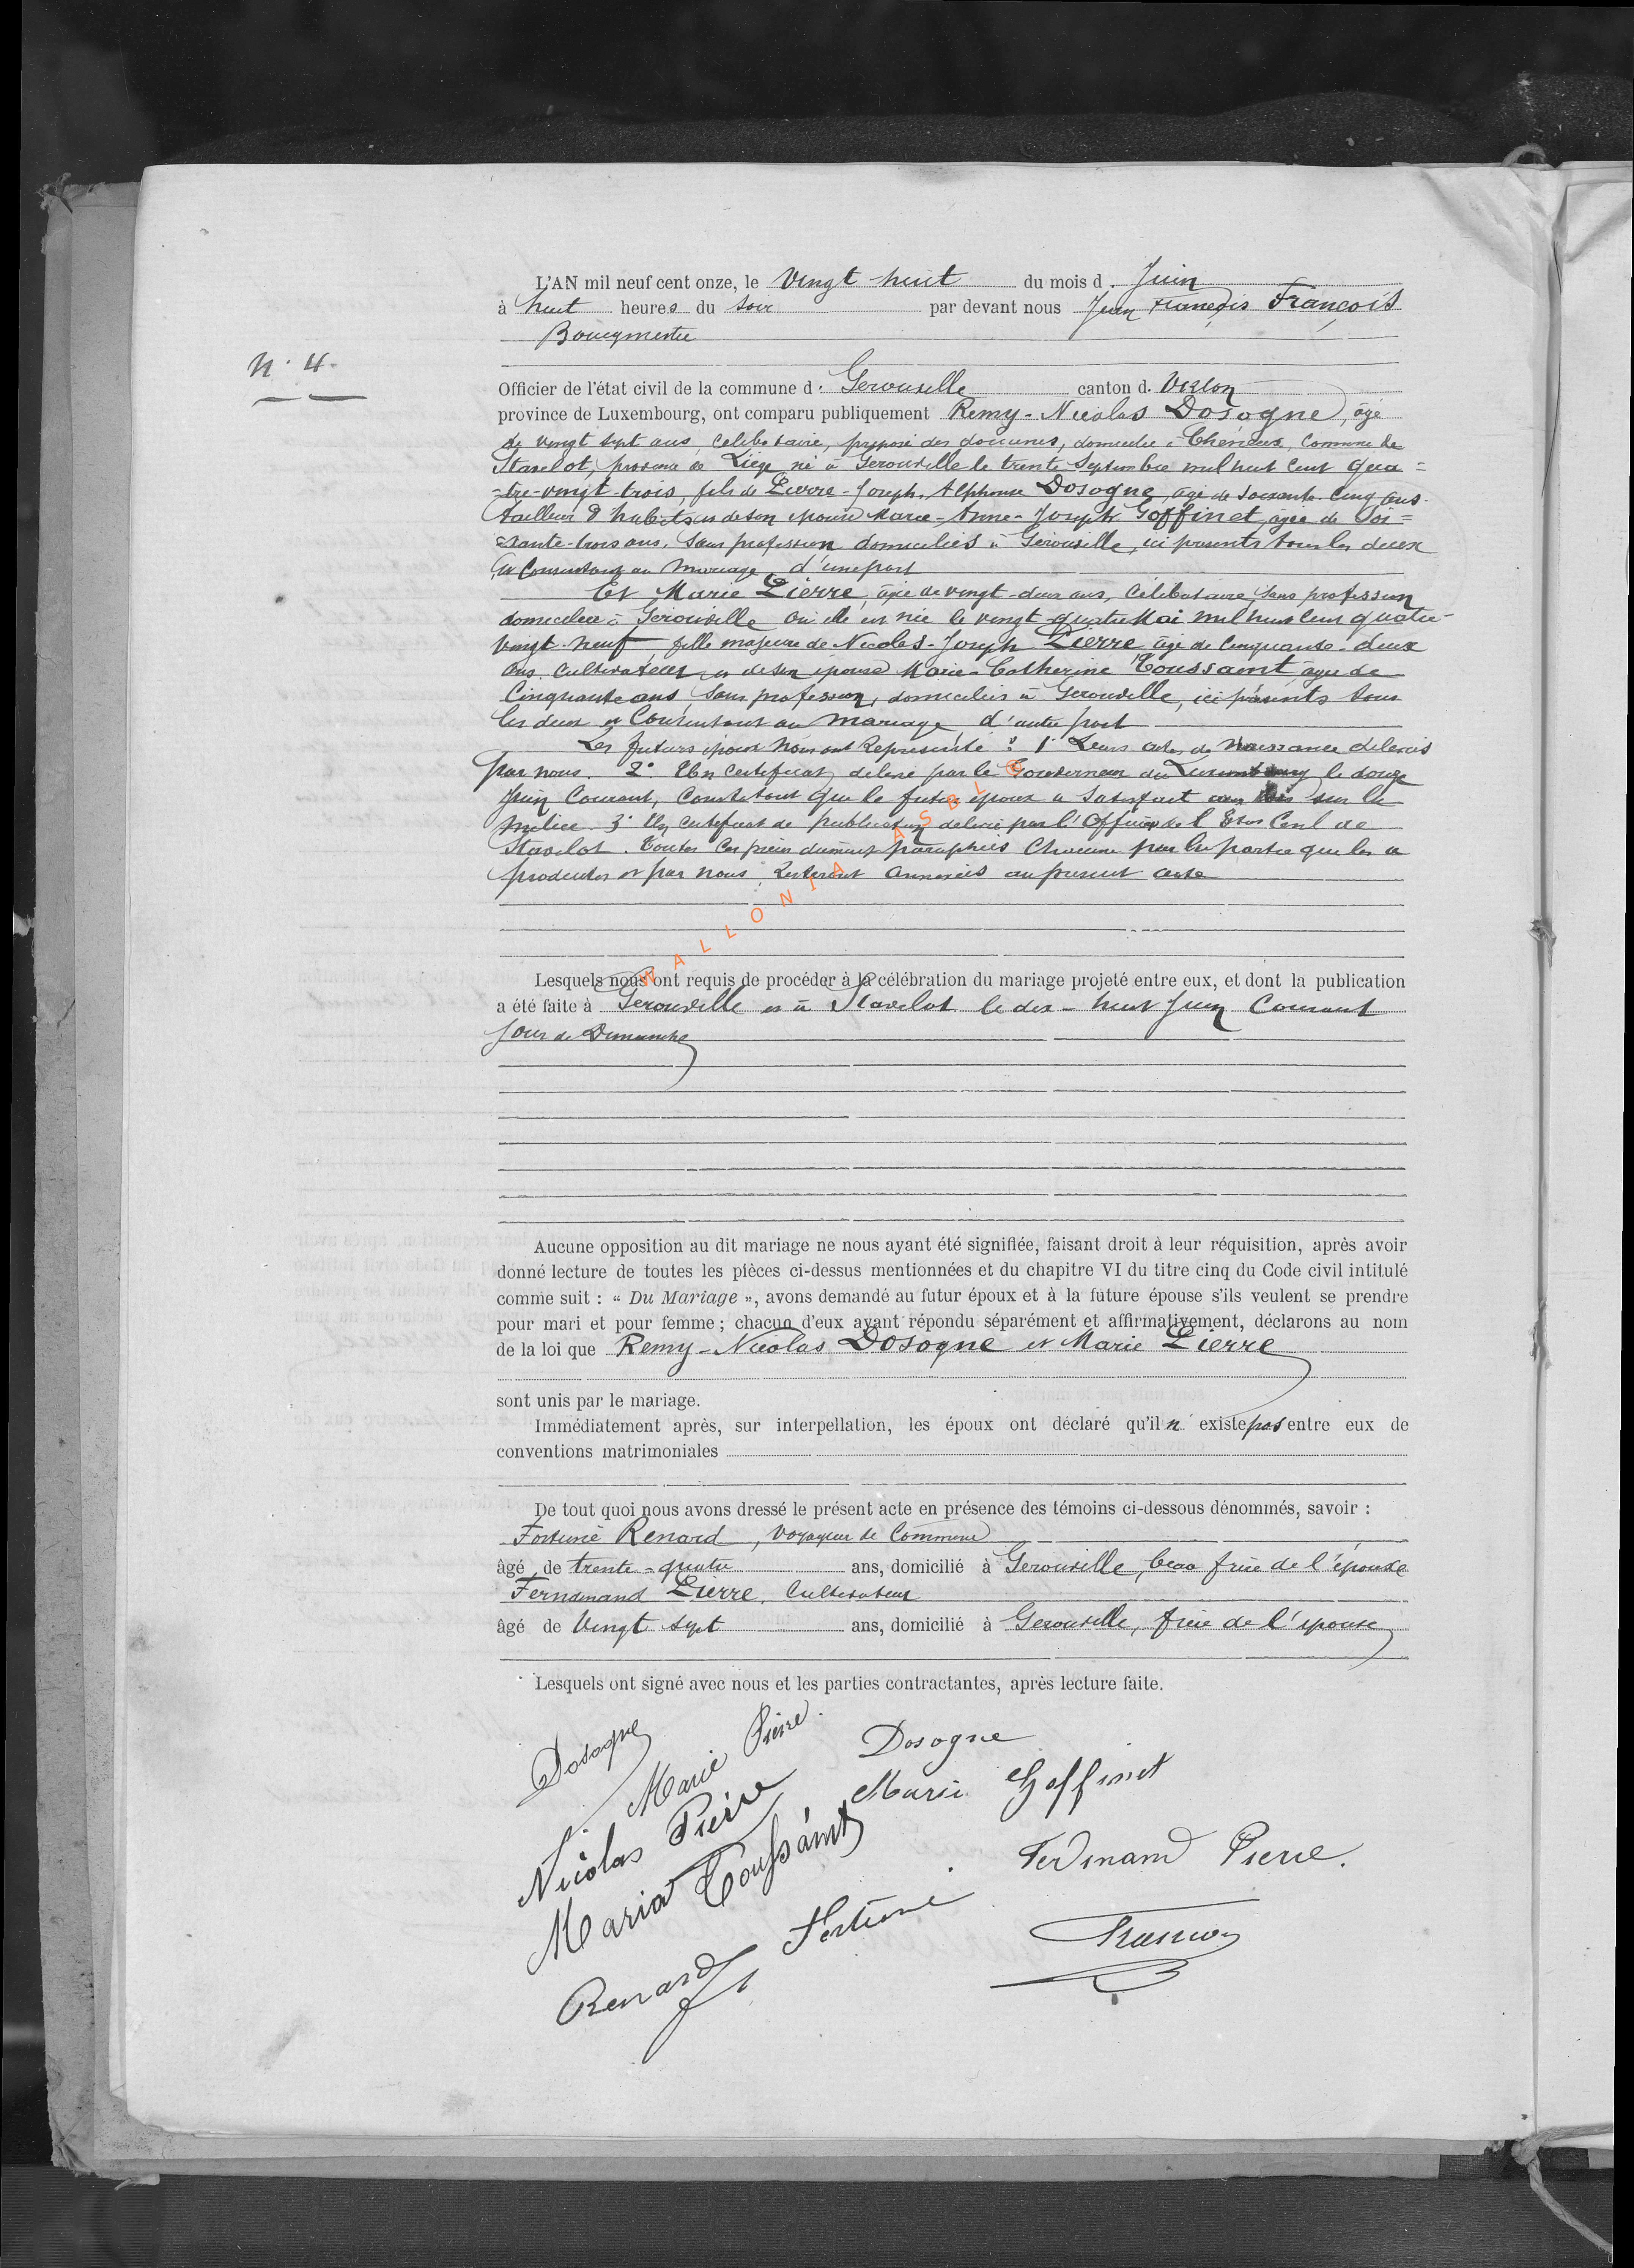 L'AN mil neuf cent onze, le Vingt-huit du mois d. Juin
à huit heures du soir par devant nous Jean François François
Bourgmestre
N. 4.
Officier de l'état civil de la commune d. Gerouville canton d. Virton
province de Luxembourg, ont comparu publiquement Remy-Nicolas Dosogne, âgé
de vingt sept ans, célibataire, préposé des douanes, domicilié à Commune de
Stavelot, province de Liège né à Gerouville le trente Septembre mil huit Cent qua=
=tre-vingt-trois, fils de Pierre-Joseph, Alphonse Dosogne, âgé de soixante-Cinq ans
tailleur d'habits et de son épouse Marie-Anne-Joseph Goffinet, âgée de Soi=
xante-trois ans, Sans profession domiciliés à Gérouville, ici présents tous les deux
et Consentant au Mariage, d'une part
Et Marie Pierre, âgée de vingt-deux ans, Célibataire, Sans profession
domiciliée à Gérouville où elle est née le vingt-quatre Mai mil huit Cent quatre-
vingt-neuf, fille majeure de Nicolas-Joseph Pierre âgé de Cinquante-deux
ans, Cultivateur et de son épouse Marie-Catherine Toussaint âgée de
Cinquante ans, Sans profession, domiciliés à Gerouville, ici présents tous
les deux et Consentant au Mariage, d'autre part
Les futurs époux Nous ont Représenté : 1° Leurs actes de Naissance délivrés
par nous. 2° Un Certificat, délivré par le Gouverneur du Luxembourg, le douze
Juin Courant, Constatant que le futur époux a Satisfait aux lois sur la
milice. 3° Un Certificat de publication délivré par l'Officier de l'Etat Civil de
Stavelot. Toutes Ces pièces paraphées Chacune par la partie qui les a
produites et par nous, Resteront Annexées au présent acte
WALLONIA ASBL ©
Lesquels nous ont requis de procéder à la célébration du mariage projeté entre eux, et dont la publication
a été faite à Gerouville et à Stavelot le dix-huit Juin Courant
Jour de Dimanche
Aucune opposition au dit mariage ne nous ayant été signifiée, faisant droit à leur réquisition, après avoir
donné lecture de toutes les pièces ci-dessus mentionnées et du chapitre VI du titre cinq du Code civil intitulé
comme suit : « Du Mariage », avons demandé au futur époux et à la future épouse s'ils veulent se prendre
pour mari et pour femme ; chacun d'eux ayant répondu séparément et affirmativement, déclarons au nom
de la loi que Remy-Nicolas Dosogne et Marie Pierre
sont unis par le mariage.
Immédiatement après, sur interpellation, les époux ont déclaré qu'il n'existe pas entre eux de
conventions matrimoniales
De tout quoi nous avons dressé le présent acte en présence des témoins ci-dessous dénommés, savoir :
Fortuné Renard, Voyageur de Commerce
âgé de trente-quatre ans, domicilié à Gerouville, beau frère de l'épouse
Ferndinand Pierre, Cultivateur
âgé de Vingt sept ans, domicilié à Gerouville, frère de l'épouse
Lesquels ont signé avec nous et les parties contractantes, après lecture faite.
Dosogne
Marie Pierre.
Dosogne
Nicolas Pierre
Marie Goffinet
Maria Toussaint
Ferdinand Pierre.
Renard Fortuné
François